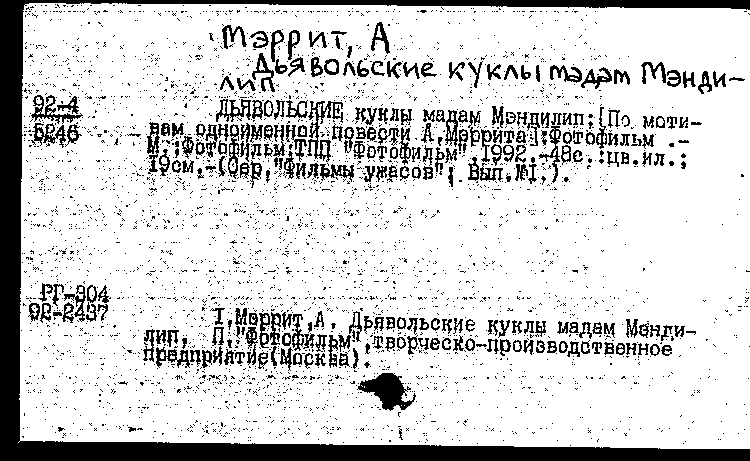 Мэррит, А
Дьявольские куклы мадам Мэнди-
лип
92-4
5246
ДЬЯВОЛЬСКИЕ куклы мадам Мэндилип:[По моти-
вам одноименной повести А.Мэррита]:Фотофильм .-
М.:Фотофильм:ТПП "Фотофильм",1992.-48с.:цв.ил.;
19см.-(Сер."Фильмы ужасов"; Вып.№I.).
РГ-304
92-2437
I.Мэррит,А. Дьявольские куклы мадам Мэнди-
лип, П."Фотофильм",творческо-производственное
предприятие(Москва).